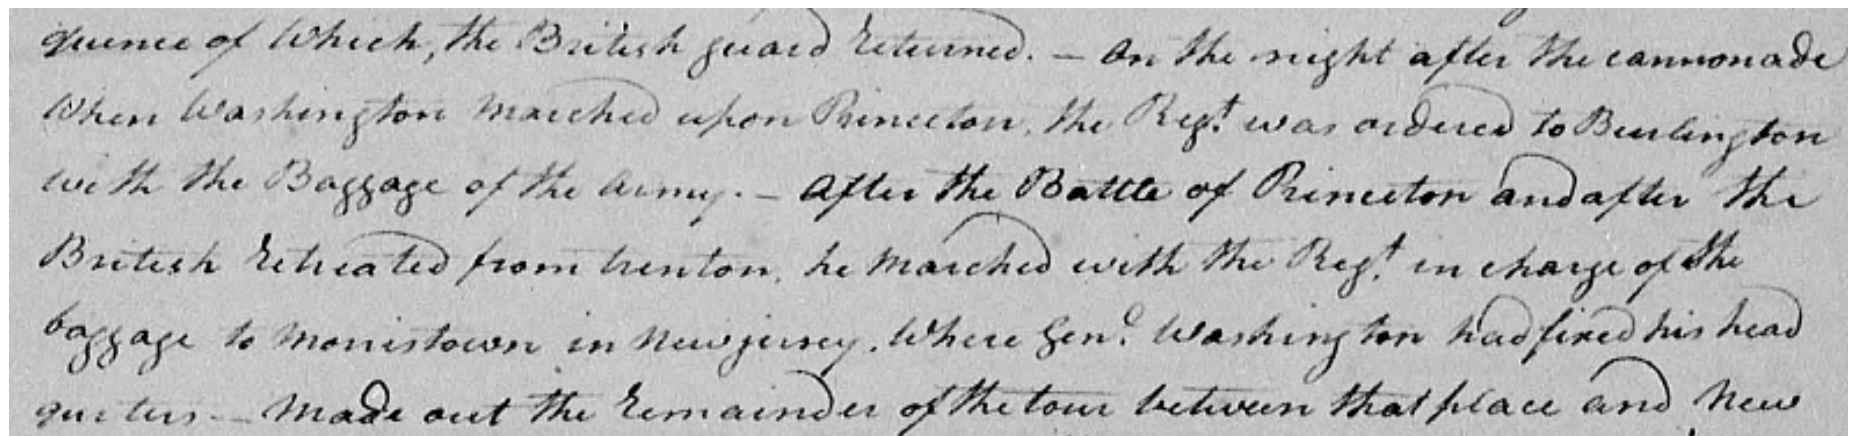 quence of Which, the British guard returned. – On the night after the cannonade
When Washington Marched upon Princeton, the Regt. was ordered to Burlington
with the Baggage of the Army. – After the Battle of Princeton and after the
British retreated from trenton, he Marched with the Regt. in charge of the
baggage to Morristown in New jersey. Where Genl. Washington had fixed his head
qurters – Made out the remainder of the tour between that place and New